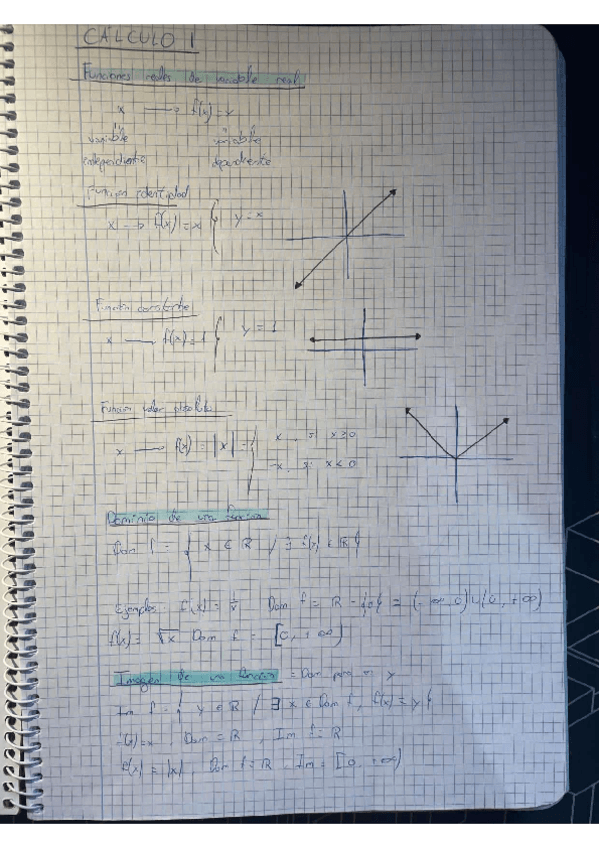 CÁLCULO 1
Funciones reales de variable real
x → f(x) = y
variable variable
independiente dependiente
Función identidad
x → f(x) = x { y = x
Función constante
x → f(x) = 1 { y = 1
Función valor absoluto
x → f(x) = |x| = { x, si x ≥ 0
-x, si x < 0
Dominio de una función
Dom f = { x ∈ R / ∃ f(x) ∈ R }
Ejemplos: f(x) = 1/x Dom f = R - {0} = (-∞, 0) ∪ (0, +∞)
f(x) = √x Dom f = [0, +∞)
Imagen de una función = Dom pero en y
Im f = { y ∈ R / ∃ x ∈ Dom f, f(x) = y }
f(x) = x, Dom = R, Im f = R
f(x) = |x|, Dom f = R Im = [0, +∞)